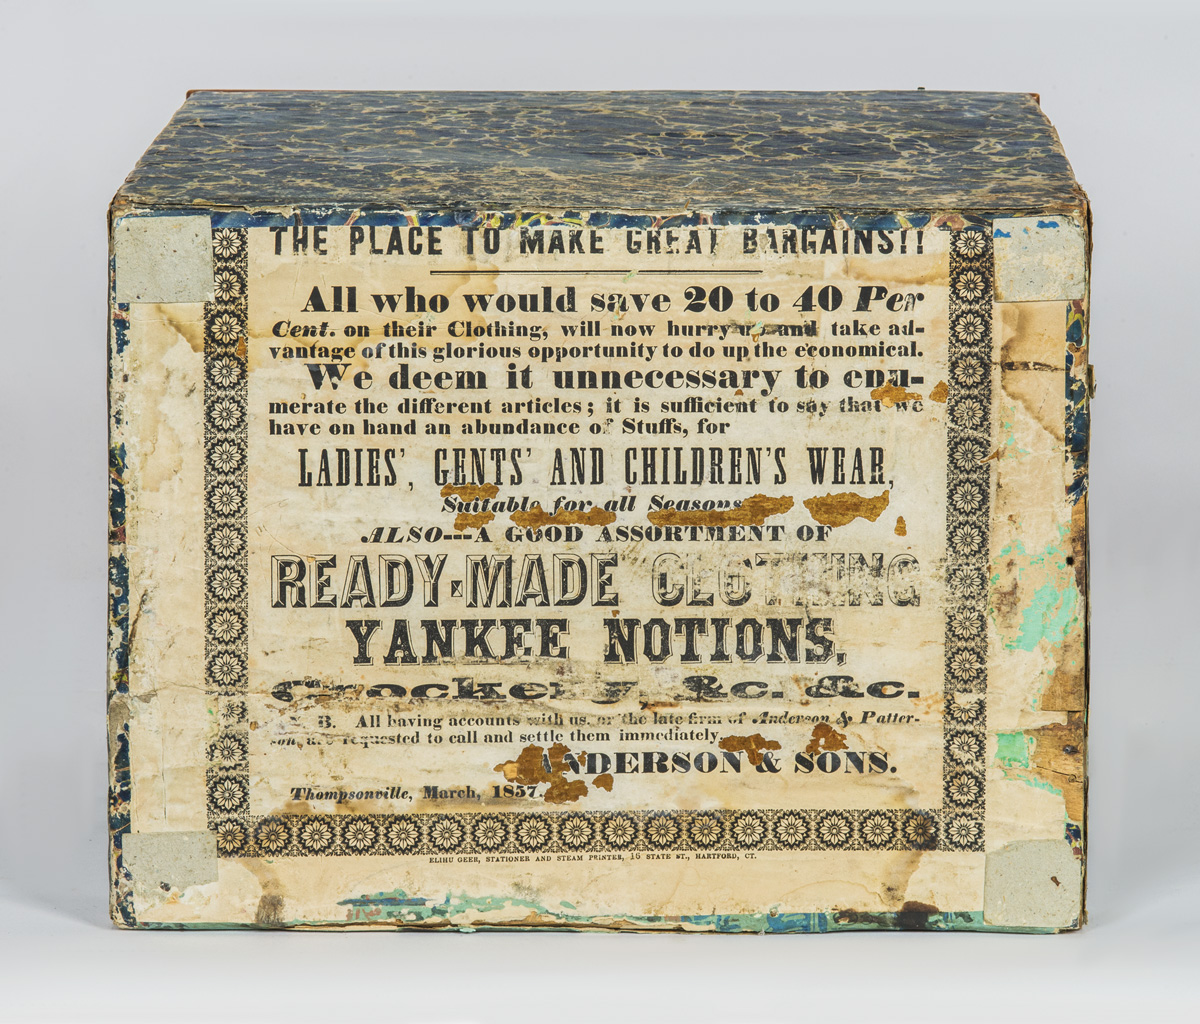 THE PLACE TO MAKE GREAT BARGAINS!!
All who would save 20 to 40 Per
Cent. on their Clothing, will now hurry up and take ad-
vantage of this glorious opportunity to do up the economical.
We deem it unnecessary to enu-
merate the different articles; it is sufficient to say that we
have on hand an abundance of Stuffs, for
LADIES', GENTS' AND CHILDREN'S WEAR,
Suitable for all Seasons
ALSO---A GOOD ASSORTMENT OF
READY-MADE CLOTHING
YANKEE NOTIONS,
Crockery, &c. &c.
N. B. All having accounts with us, or the late firm of Anderson & Patter-
son, are requested to call and settle them immediately.
ANDERSON & SONS.
Thompsonville, March, 1857.
ELIHU GEER, STATIONER AND STEAM PRINTER, 16 STATE ST., HARTFORD, CT.